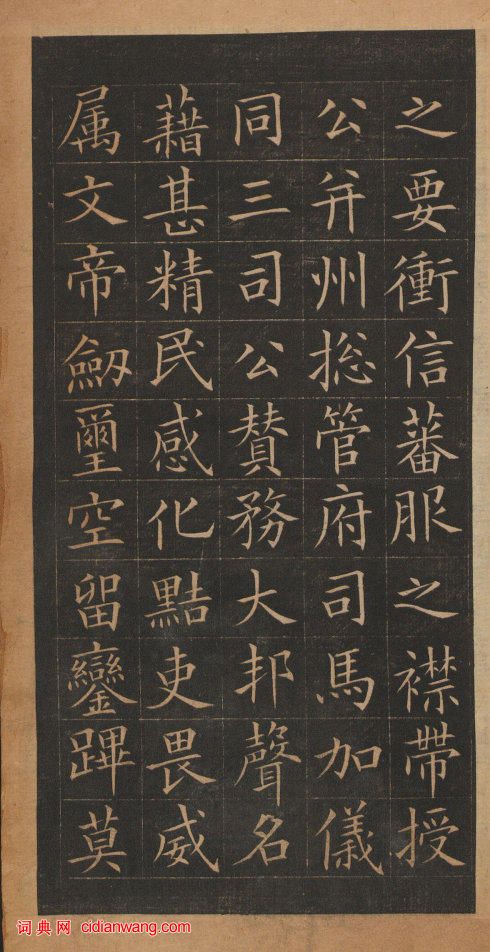 之要衝信蕃服之襟帶授
公并州捴管府司馬加儀
同三司公贊務大邦聲名
藉甚精民感化黠吏畏威
属文帝劔璽空留鑾蹕莫
词典网 cidianwang.com